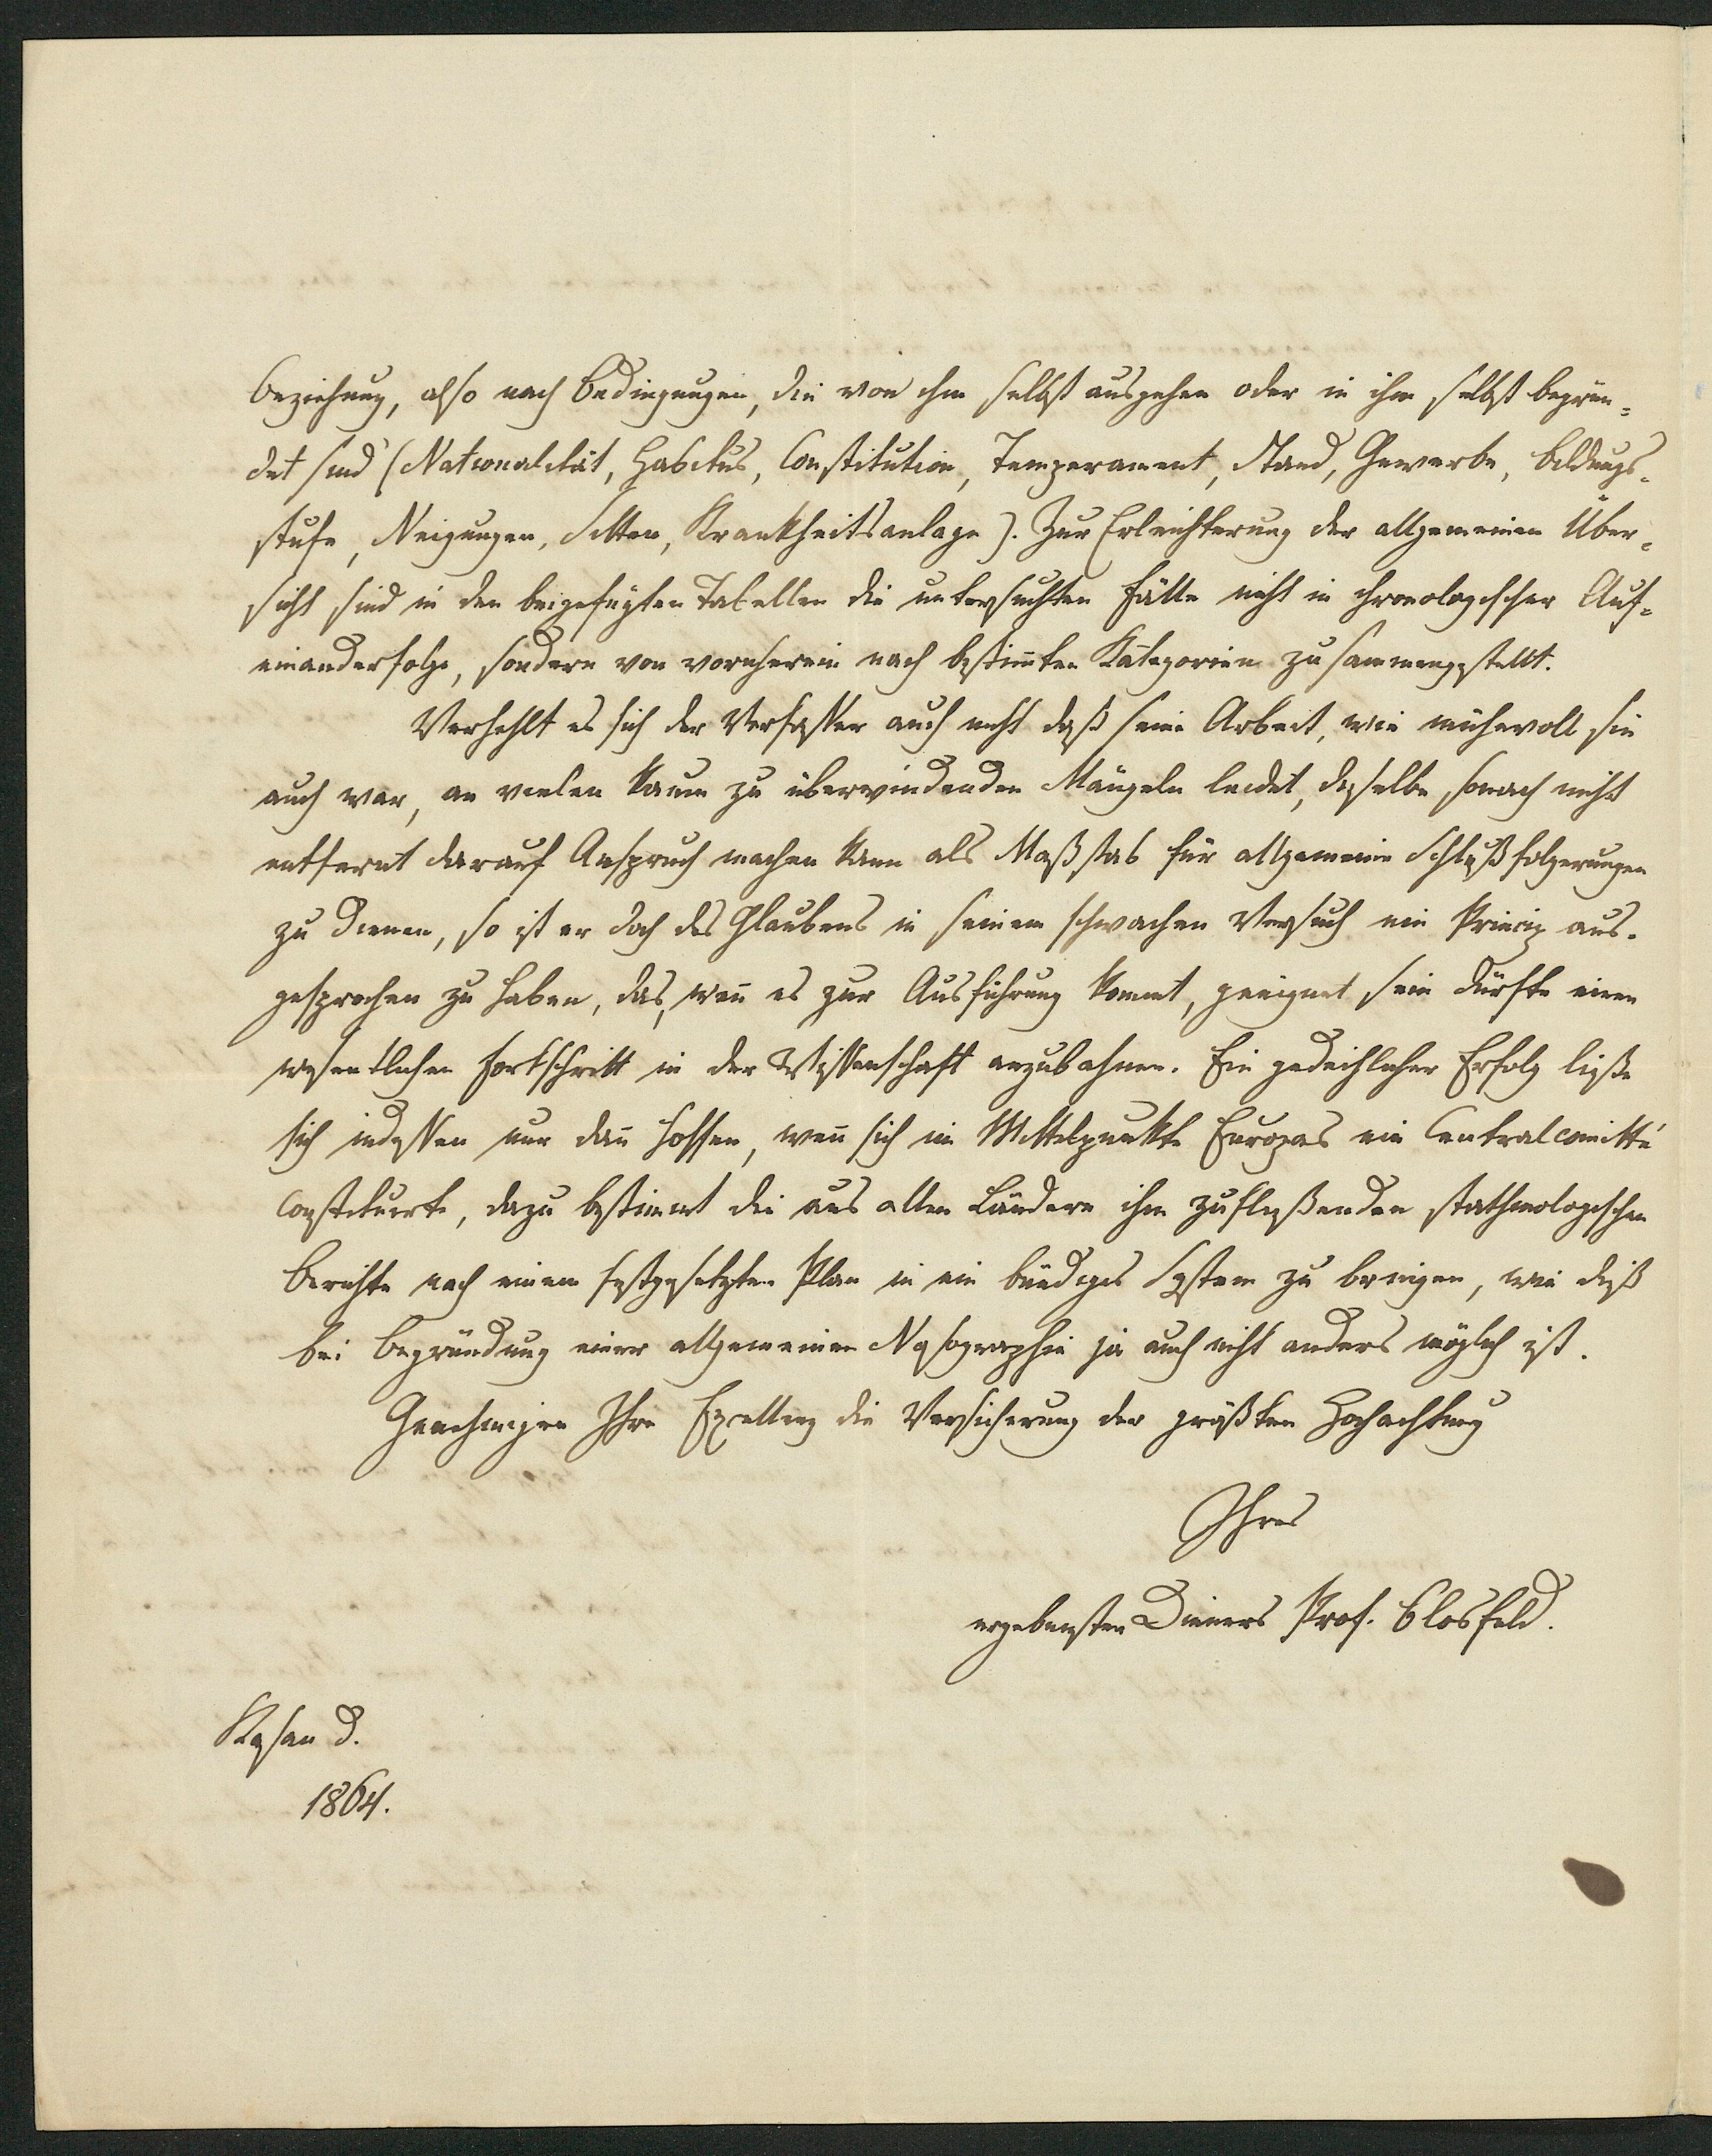 Beziehung, also nach Bedingungen, die von ihm selbst ausgehen oder in ihm selbst begrün=
det sind (Nationalität, Habitus, Constitution, Temperament, Stand, Gewerbe, Bildungs-
stufe, Neigungen, Sitten, Krankheitsanlage). Zur Erleichterung der allgemeinen Über-
sicht sind in den beigefügten Tabellen die untersuchten Fälle nicht in chronologischer Auf=
einanderfolge, sondern von vornherein nach bestimten Kategorien zusammengestellt.
Verhehlt es sich der Verfasser auch nicht daß seine Arbeit, wie mühevoll sie
auch war, an vielen kaum zu überwindenden Mängeln leidet, dieselbe sonach nicht
entfernt darauf Anspruch machen kann als Maßstab für allgemeine Schlußfolgerungen
zu dienen, so ist er doch des Glaubens in seinem schwachen Versuch ein Princip aus-
gesprochen zu haben, das, wen es zur Ausführung kommt, geeignet sein dürfte einen
wesentlichen Fortschritt in der Wissenschaft anzubahnen. Ein gedeihlicher Erfolg ließe
sich indessen nur dan hoffen, wen sich im Mittelpunkte Europas ein Centralcomitté
constituirte, dazu bestimmt die aus allen Ländern ihm zufließenden stathmologischen
Berichte nach einem festgesetzten Plan in ein bündiges System zu bringen, wie dieß
bei Begründung einer allgemeinen Nosographie ja auch nicht anders möglich ist.
Genehmigen Ihre Exellenz die Versicherung der größten Hochachtung
Ihres
ergebensten Dieners Prof. Blosfeld.
Kasan d.
1864.